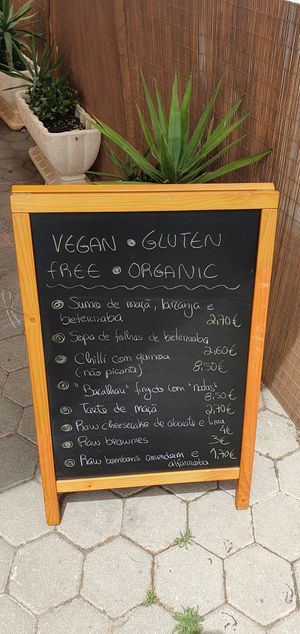 VEGAN • GLUTEN
FREE • ORGANIC
Sumo de maçã, laranja e
beterraba 2,70€
Sopa de folhas de beterraba
2,60€
Chilli com quinoa
(não picante) 8,50€
"Bacalhau" fingido com "natas"
8,50€
Tarte de maçã 2,70€
Raw cheesecake de abacate e lima
4€
Raw brownies 3€
Raw bombons amendoim e 1,70€
alfarroba